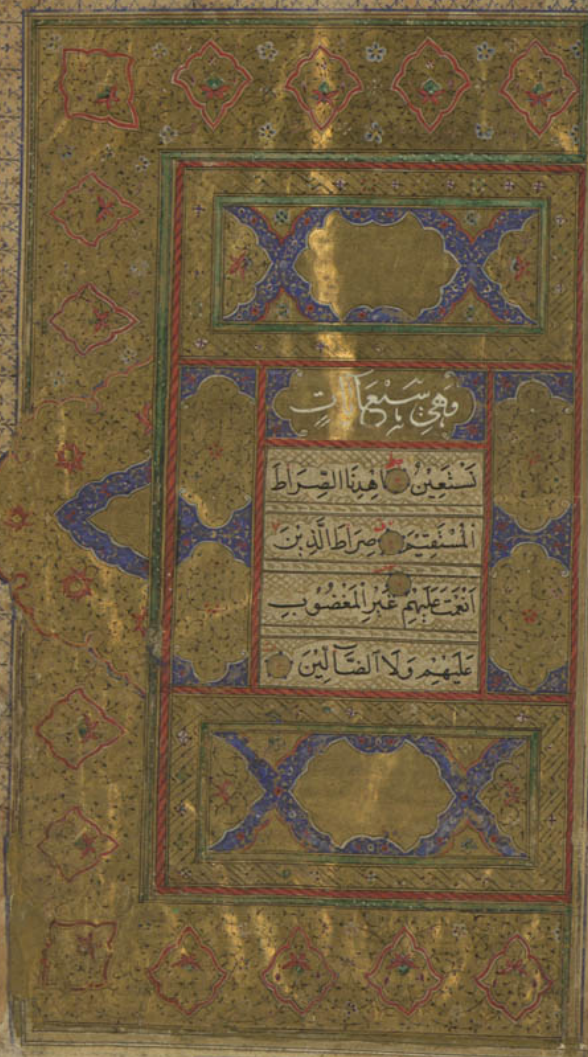 وَهِيَ سَبْعُ آيَاتٍ
نَسْتَعِيْنُ اِهْدِنَا الصِّرَاطَ
الْمُسْتَقِيْمَ صِرَاطَ الَّذِيْنَ
اَنْعَمْتَ عَلَيْهِمْ غَيْرِ الْمَغْضُوْبِ
عَلَيْهِمْ وَلَا الضَّآلِّيْنَ